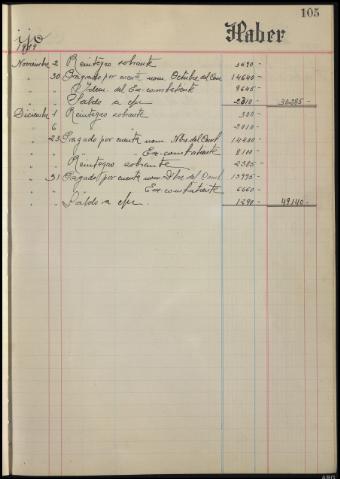 105
ijo
Haber
1939
Noviembre 2 Reintegro sobrante 3690 -
" 30 Pagado por cuenta nom. Octubre del Comb 14640 -
" " Idem. del Ex-combatiente 9645 -
" " Saldo a c/n 2310 - 30285 -
Diciembre 1 Reintegro sobrante 300 -
" 6 " " 2010 -
" 23 Pagado por cuenta nom. Nbre. del Comb 14400 -
" " " " Ex-combatiente 8100 -
" " Reintegro sobrante 2385 -
" 31 Pagado por cuenta nom. Dbre del Comb 13995 -
" " " Ex-combatiente 6660 -
" " Saldo a c/n. 1290 - 49140 -